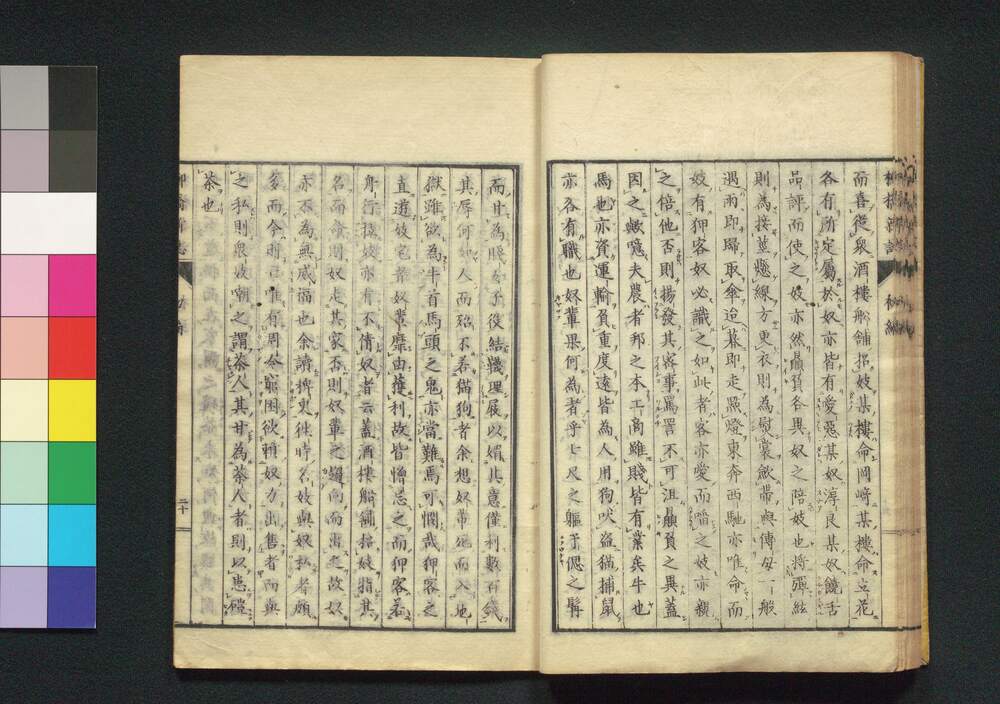 而喜從衆酒樓船舗招妓某樓命岡﨑某樓命立花
各有所定屬於奴亦皆有愛惡某奴淳良某奴饒舌
品評而使之妓亦然贔負各異奴之陪妓也將彈絃
則為接慈線方更衣則為慰裳斂帶與傳母一般
遇雨即歸取傘迨暮即走照燈東奔西馳亦唯命而
妓有狎客奴必識之如此者客亦愛而啗之妓亦親
之倍他否則揚發其客事罵詈不可沮贔負之異蓋
因之歟噫夫農者邦之本工商雖賤皆有業矣牛也
馬也亦資運輸負重度遠皆為人用狗吠盗猫捕鼠
亦各有職也奴輩果何為者乎七尺之軀于偲之髯
而甘為賤分子役結韈理屐以媚其意僅利數百錢
其辱何如人而殆不若猫狗者余想奴帯死而入地
獄雖欲為牛首馬頭之鬼亦當難焉可憫哉狎客之
直遊妓宅皆奴輩靡由獲利故皆憎忌之而狎客若
身行接妓亦有不倩奴者云蓋酒樓船舗招妓指其
名而命則奴走其家否則奴輩之趨向而出之故奴
亦不為無威福也余讀稗史往時名妓與奴私者頗
多而今則已唯有周年窮困欲頼奴力出售者而與
之私則衆妓嘲之謂茶人其甘為茶人者則以患碚
茶也
二十